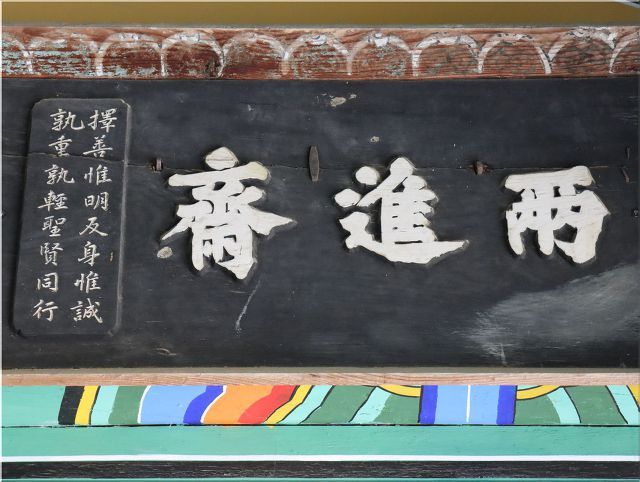 兩進齋
擇善惟明反身惟誠
孰重孰輕聖賢同行